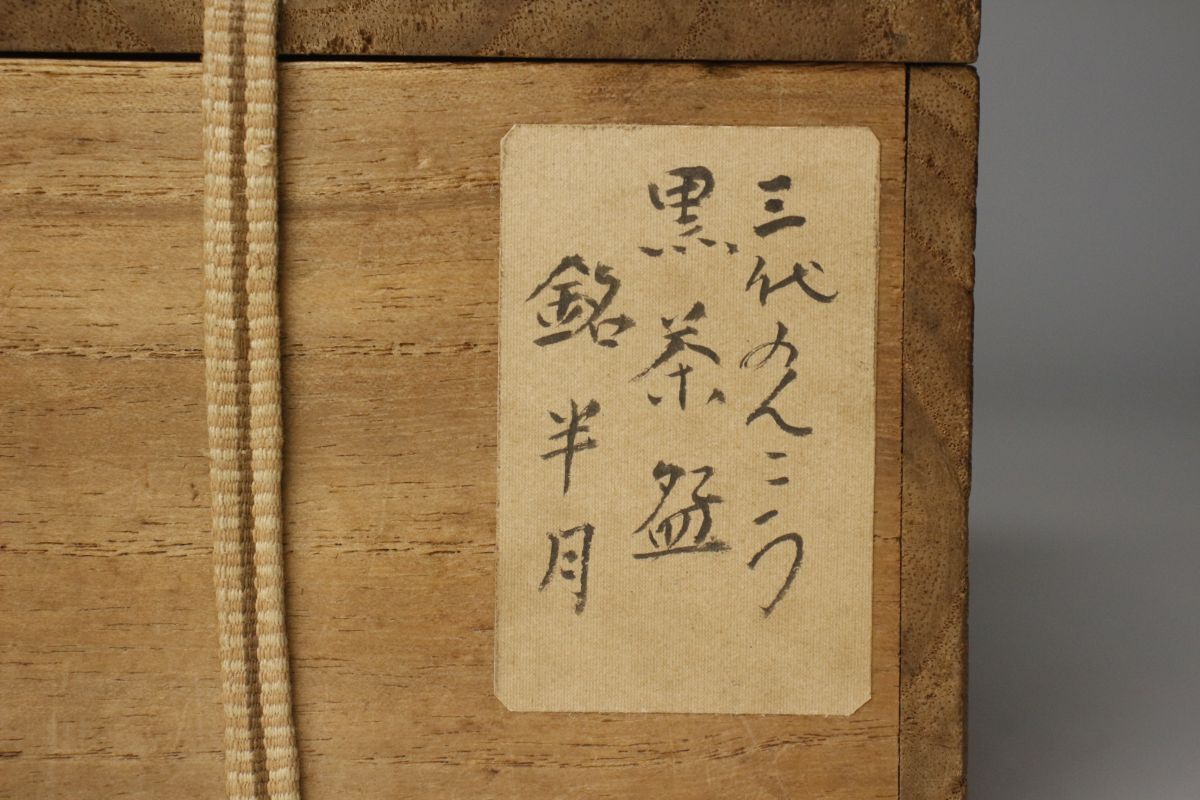 三代のんこう
黒茶盌
銘半月